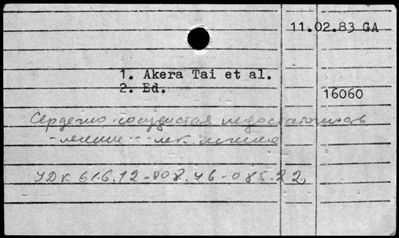 11.02.83 GA
1. Akera Tai et al.
2. Ed.
16060
Сердечно-сосудистая недостаточность
- лечение - лек. лечение
УДК 616.12-008.46-085.22